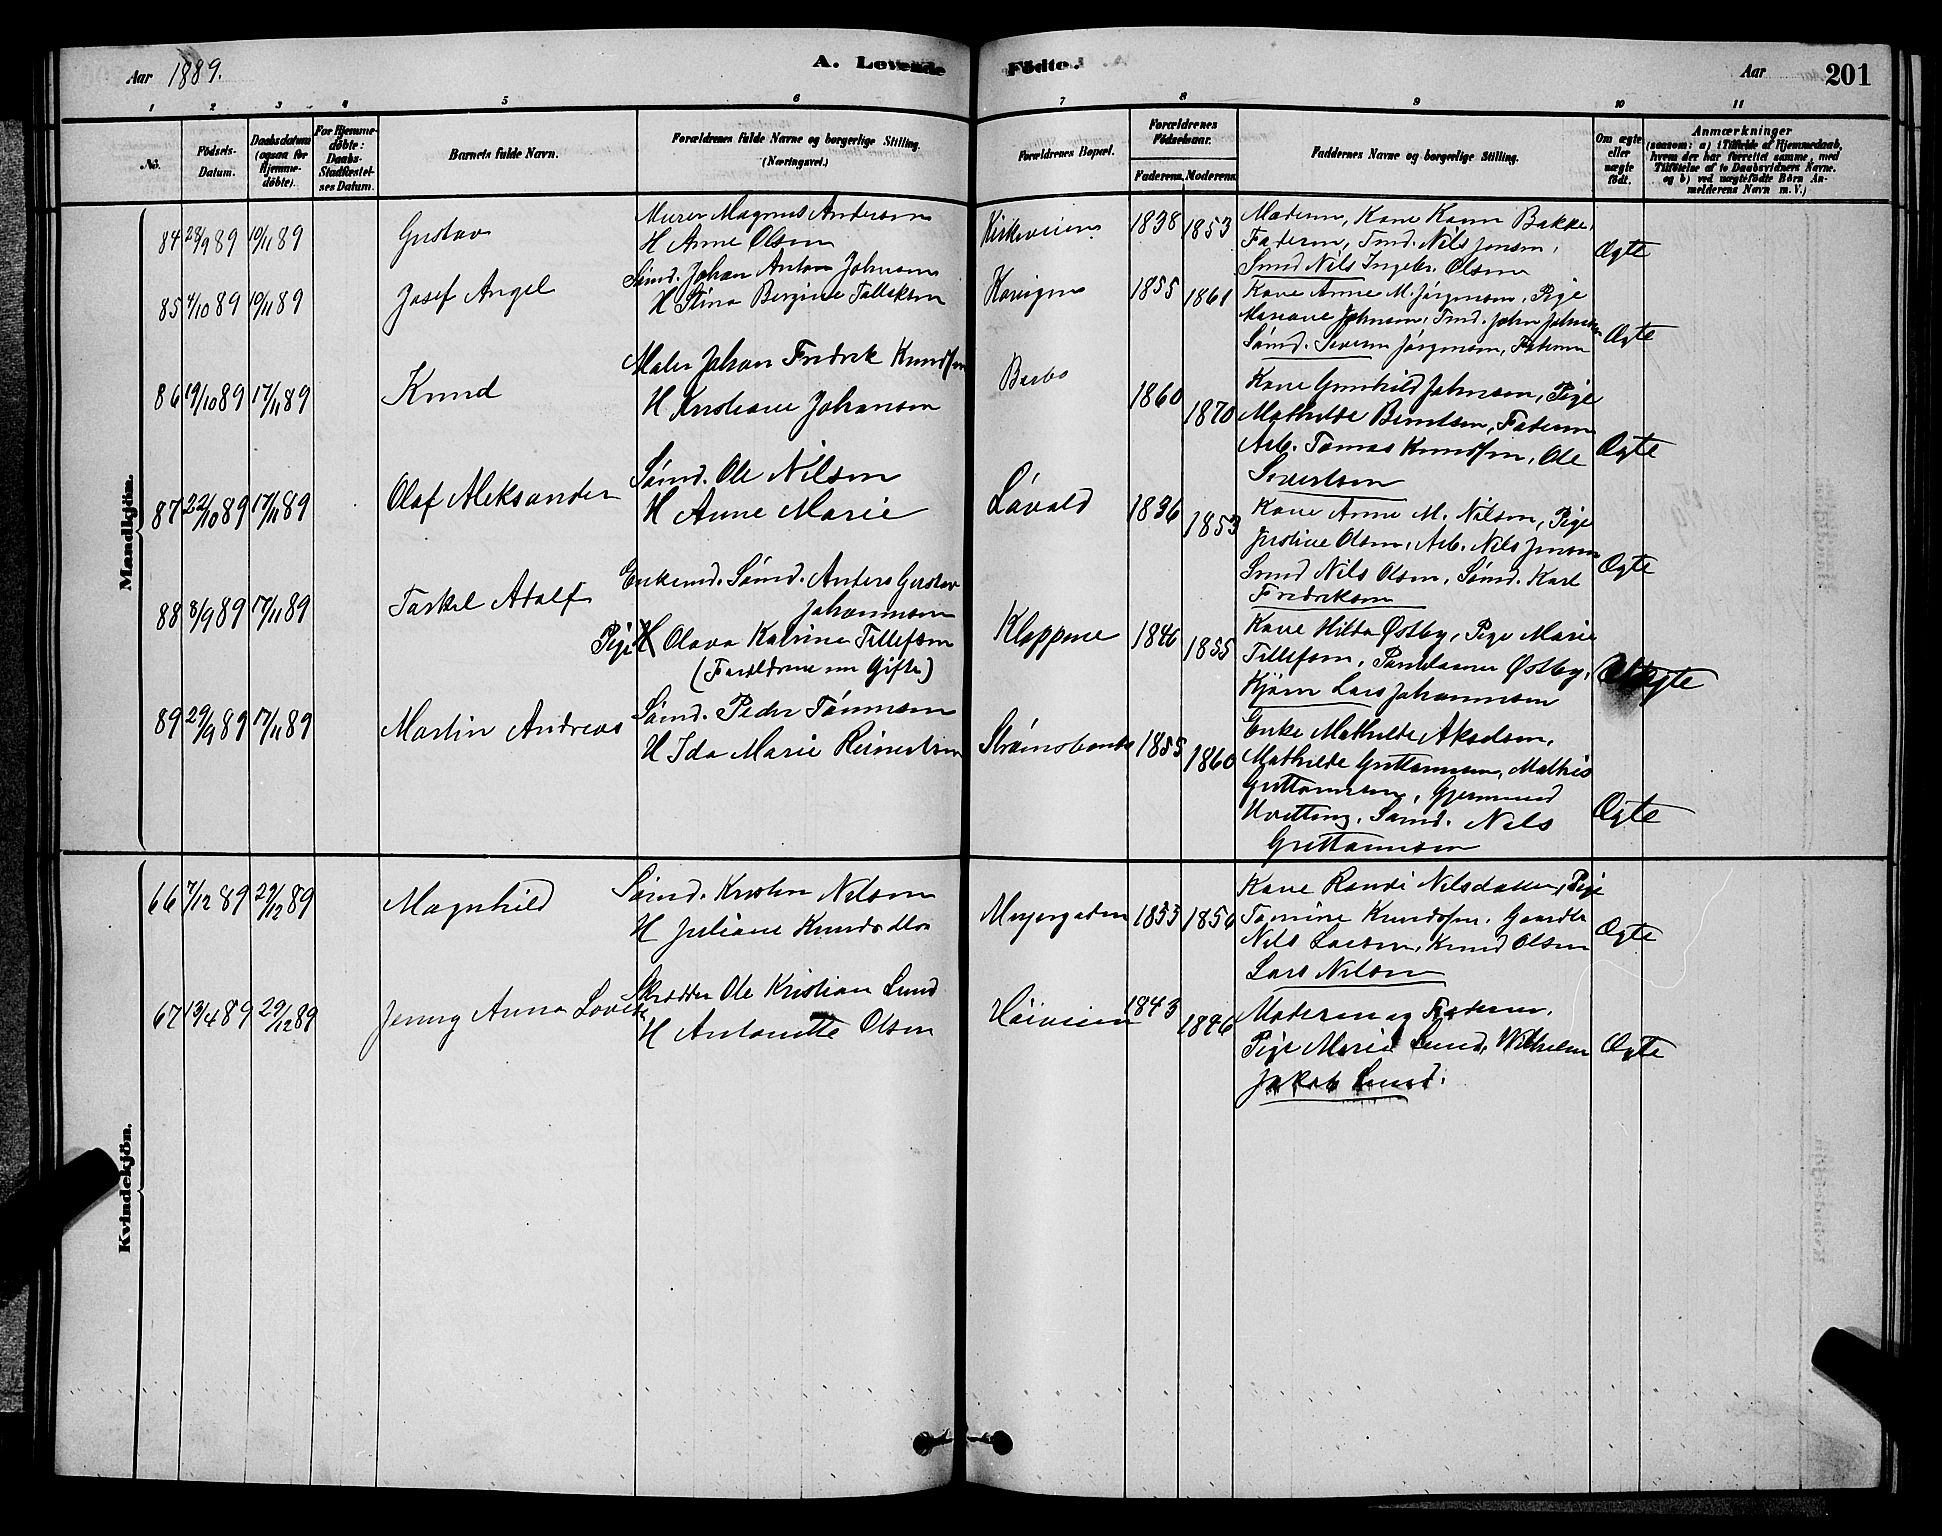 Aar 1889.
A. Levende Födte.
Aar
201
1 2 3 4 5 6 7 8 9 10 11
No.
Födsels-Datum.
Daabsdatum (ogsaa for Hjemmedöbte).
For Hjemmedöbte: Daabs-Stadfæstelses Datum.
Barnets fulde Navn.
Forældrenes fulde Navne og borgerlige Stilling. (Næringsvei.)
Forældrenes Bopæl.
Forældrenes Födselsaar.
Faderens. Moderens.
Faddernes Navne og borgerlige Stilling.
Om ægte eller uægte födt.
Anmærkninger
(saasom: a) i Tilfælde af Hjemmedaab, hvem der har forrettet samme, med Tilföielse af to Daabsvidners Navne. og b) ved uægtefödte Börn Anmelderens Navn m. V.)
Mandkjön.
84 28/9 89 10/11 89 Gustav
Murer Magnus Anderson
H Anne Olsen
Kirkeveien 1838 1853
Moderen, Kone Karen Bakke,
Faderen, Tmd. Nils Jensen,
Smed Nils Ingebr. Olsen
Ægte
85 4/10 89 10/11 89 Josef Angel
Sömd. Johan Anton Johnsen
H Stina Bergine Tellefsen
1855 1861
Kone Anne M. Jörgensen, Pige
Mariane Johnsen, Tmd. John Johnsen
Sömd. Severin Jörgensen, Faderen
Ægte
86 19/10 89 17/11 89 Knud
Maler Johan Fredrik Knudsen
H Kristiane Johansen
Barbo 1860 1870
Kone Gunhild Johnsen, Pige
Mathilde Berntsen, Faderen
Arb. Tomas Knudsen, Ole
Sivertsen
Ægte
87 22/10 89 17/11 89 Olaf Aleksander
Sömd. Ole Nilsen
H Anne Marie
Lövold 1836 1853
Kone Anne M. Nilsen, Pige
Justine Olsen, Arb. Nils Jensen
Smed Nils Olsen, Sömd. Karl
Fredriksen
Ægte
88 3/9 89 17/11 89 Tarkel Adolf
Enkemd. Sömd. Anders Gustav
Johannesen
Pige H Olava Katrine Tellefsen
(Forældrene nu Gifte)
Kloppene 1846 1855
Kone Hilda Østby, Pige Marie
Tellefsen, Østby,
Lars Johannesen
Uægte
89 29/9 89 17/11 89 Martin Andreas
Sömd. Peder Tönnesen
H Ida Marie Reinertsen
Strömsbonde 1855 1860
Enke Mathilde Akselsen,
Mathilde Guttormsen, Mathis
Guttormsen, Gjermund
Sömd. Nils
Guttormsen
Ægte
Kvindekjön.
66 7/12 89 29/12 89 Magnhild
Sömd. Kristen Nilsen
H Juliane Knudsdtr
Meyergaden 1853 1856
Kone Randi Nilsdatter, Pige
Tomine Knudsen, Gaardbr
Nils Larsen, Knud Olsen
Lars Nilsen
Ægte
67 13/4 89 29/12 89 Jenny Anna Lovise
Skrædder Ole Kristian Lund
H Antonette Olsen
Höiveien 1843 1846
Moderen og Faderen,
Pige Marie Lund, Wilhelm
Jakob Lund.
Ægte